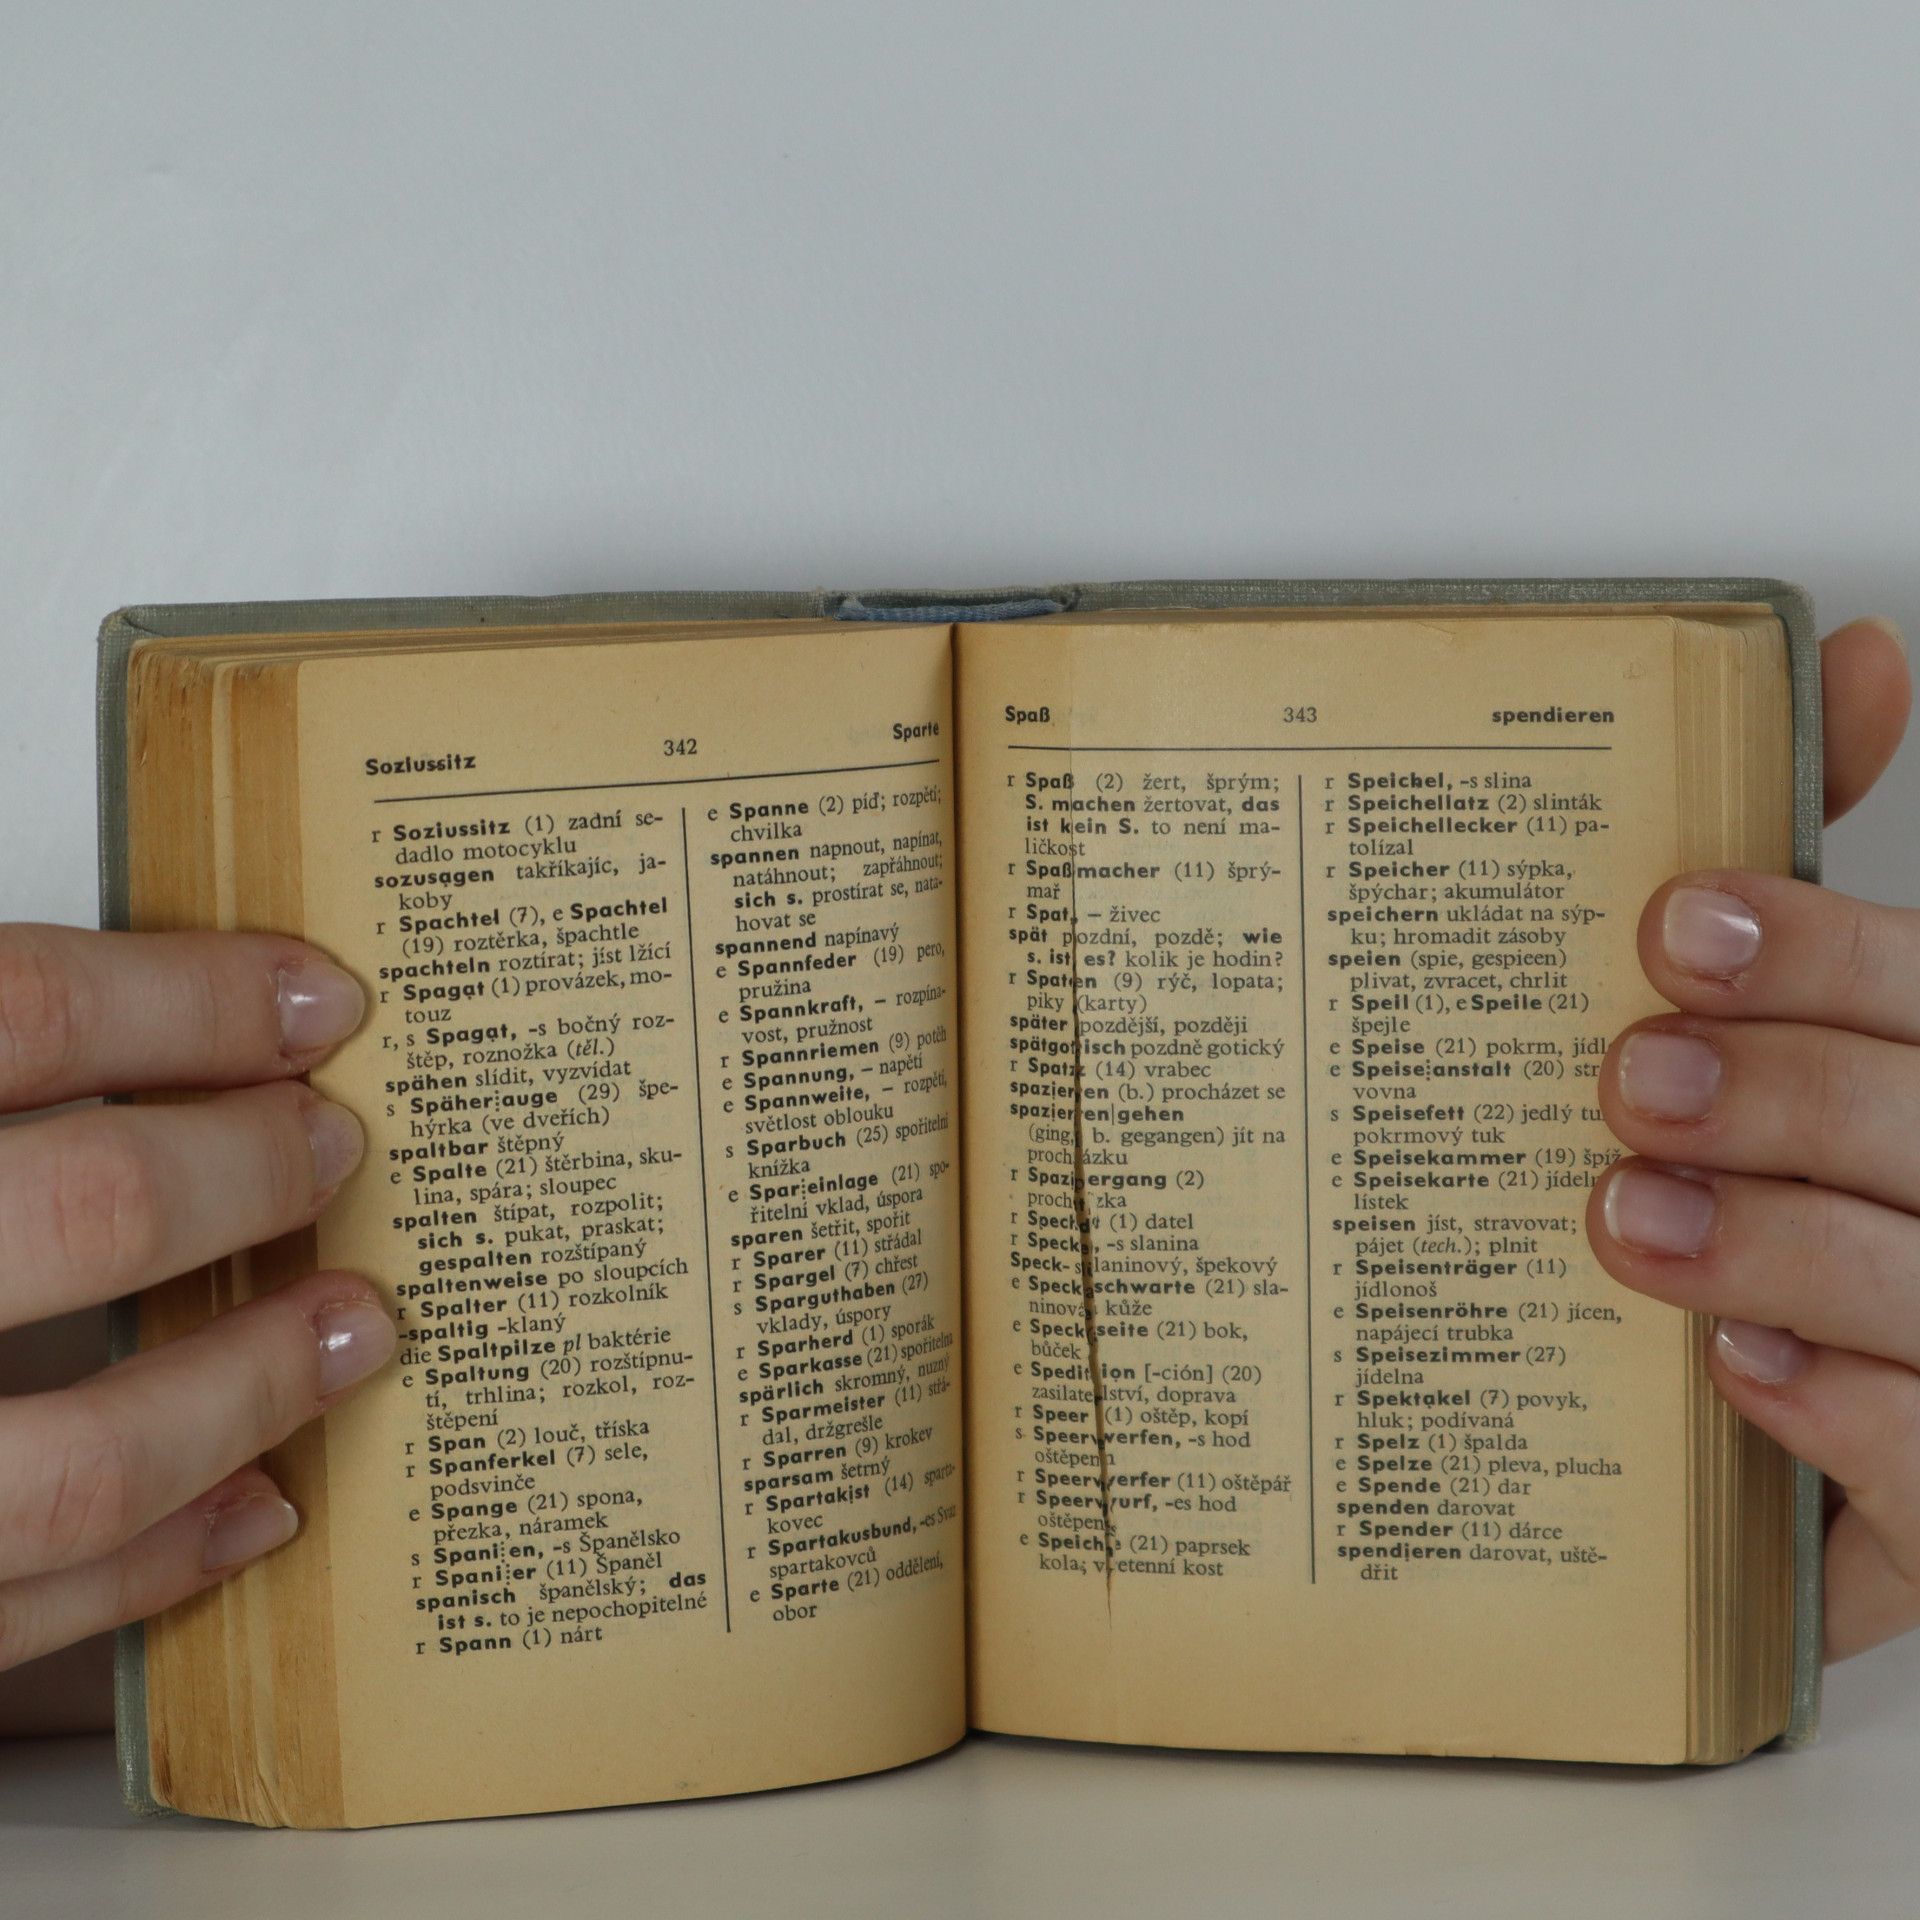 Soziussitz 342 Sparte
r Soziussitz (1) zadní se-
dadlo motocyklu
sozusagen takříkajíc, ja-
koby
r Spachtel (7), e Spachtel
(19) roztěrka, špachtle
spachteln roztírat; jíst lžící
r Spagat (1) provázek, mo-
touz
r, s Spagat, -s bočný roz-
štěp, roznožka (těl.)
spähen slídit, vyzvídat
s Späher¦auge (29) špe-
hýrka (ve dveřích)
spaltbar štěpný
e Spalte (21) štěrbina, sku-
lina, spára; sloupec
spalten štípat, rozpolit;
sich s. pukat, praskat;
gespalten rozštípaný
spaltenweise po sloupcích
r Spalter (11) rozkolník
-spaltig -klaný
die Spaltpilze pl baktérie
e Spaltung (20) rozštípnu-
tí, trhlina; rozkol, roz-
štěpení
r Span (2) louč, tříska
r Spanferkel (7) sele,
podsvinče
e Spange (21) spona,
přezka, náramek
s Spani¦en, -s Španělsko
r Spani¦er (11) Španěl
spanisch španělský; das
ist s. to je nepochopitelné
r Spann (1) nárt
e Spanne (2) píď; rozpětí;
chvilka
spannen napnout, napínat,
natáhnout; zapřáhnout;
sich s. prostírat se, nata-
hovat se
spannend napínavý
e Spannfeder (19) pero,
pružina
e Spannkraft, – rozpína-
vost, pružnost
r Spannriemen (9) potěh
e Spannung, – napětí
e Spannweite, – rozpětí,
světlost oblouku
s Sparbuch (25) spořitelní
knížka
e Spar¦einlage (21) spo-
řitelní vklad, úspora
sparen šetřit, spořit
r Sparer (11) střádal
r Spargel (7) chřest
s Sparguthaben (27)
vklady, úspory
r Sparherd (1) sporák
e Sparkasse (21) spořitelna
spärlich skromný, nuzný
r Sparmeister (11) střá-
dal, držgrešle
r Sparren (9) krokev
sparsam šetrný
r Spartakist (14) sparta-
kovec
r Spartakusbund, -es Svaz
spartakovců
e Sparte (21) oddělení,
obor
Spaß 343 spendieren
r Spaß (2) žert, šprým;
S. machen žertovat, das
ist kein S. to není ma-
ličkost
r Spaßmacher (11) šprý-
mař
r Spat, – živec
spät pozdní, pozdě; wie
s. ist es? kolik je hodin?
r Spaten (9) rýč, lopata;
piky (karty)
später pozdější, později
spätgotisch pozdně gotický
r Spatz (14) vrabec
spazieren (b.) procházet se
spazieren|gehen
(ging, b. gegangen) jít na
procházku
r Spaziergang (2)
procházka
r Specht (1) datel
r Speck, -s slanina
Speck- slaninový, špekový
e Speckschwarte (21) sla-
ninová kůže
e Speckseite (21) bok,
bůček
e Spedition [-ción] (20)
zasilatelství, doprava
r Speer (1) oštěp, kopí
s Speerwerfen, -s hod
oštěpem
r Speerwerfer (11) oštěpář
r Speerwurf, -es hod
oštěpem
e Speiche (21) paprsek
kola; vřetenní kost
r Speichel, -s slina
r Speichellatz (2) slinták
r Speichellecker (11) pa-
tolízal
r Speicher (11) sýpka,
špýchar; akumulátor
speichern ukládat na sýp-
ku; hromadit zásoby
speien (spie, gespieen)
plivat, zvracet, chrlit
r Speil (1), e Speile (21)
špejle
e Speise (21) pokrm,
e Speise¦anstalt (20)
vovna
s Speisefett (22) jedlý
pokrmový tuk
e Speisekammer (19)
e Speisekarte (21)
lístek
speisen jíst, stravovat;
pájet (tech.); plnit
r Speisenträger (11)
jídlonoš
e Speisenröhre (21) jícen,
napájecí trubka
s Speisezimmer (27)
jídelna
r Spektakel (7) povyk,
hluk; podívaná
r Spelz (1) špalda
e Spelze (21) pleva, plucha
e Spende (21) dar
spenden darovat
r Spender (11) dárce
spendieren darovat, uště-
dřit